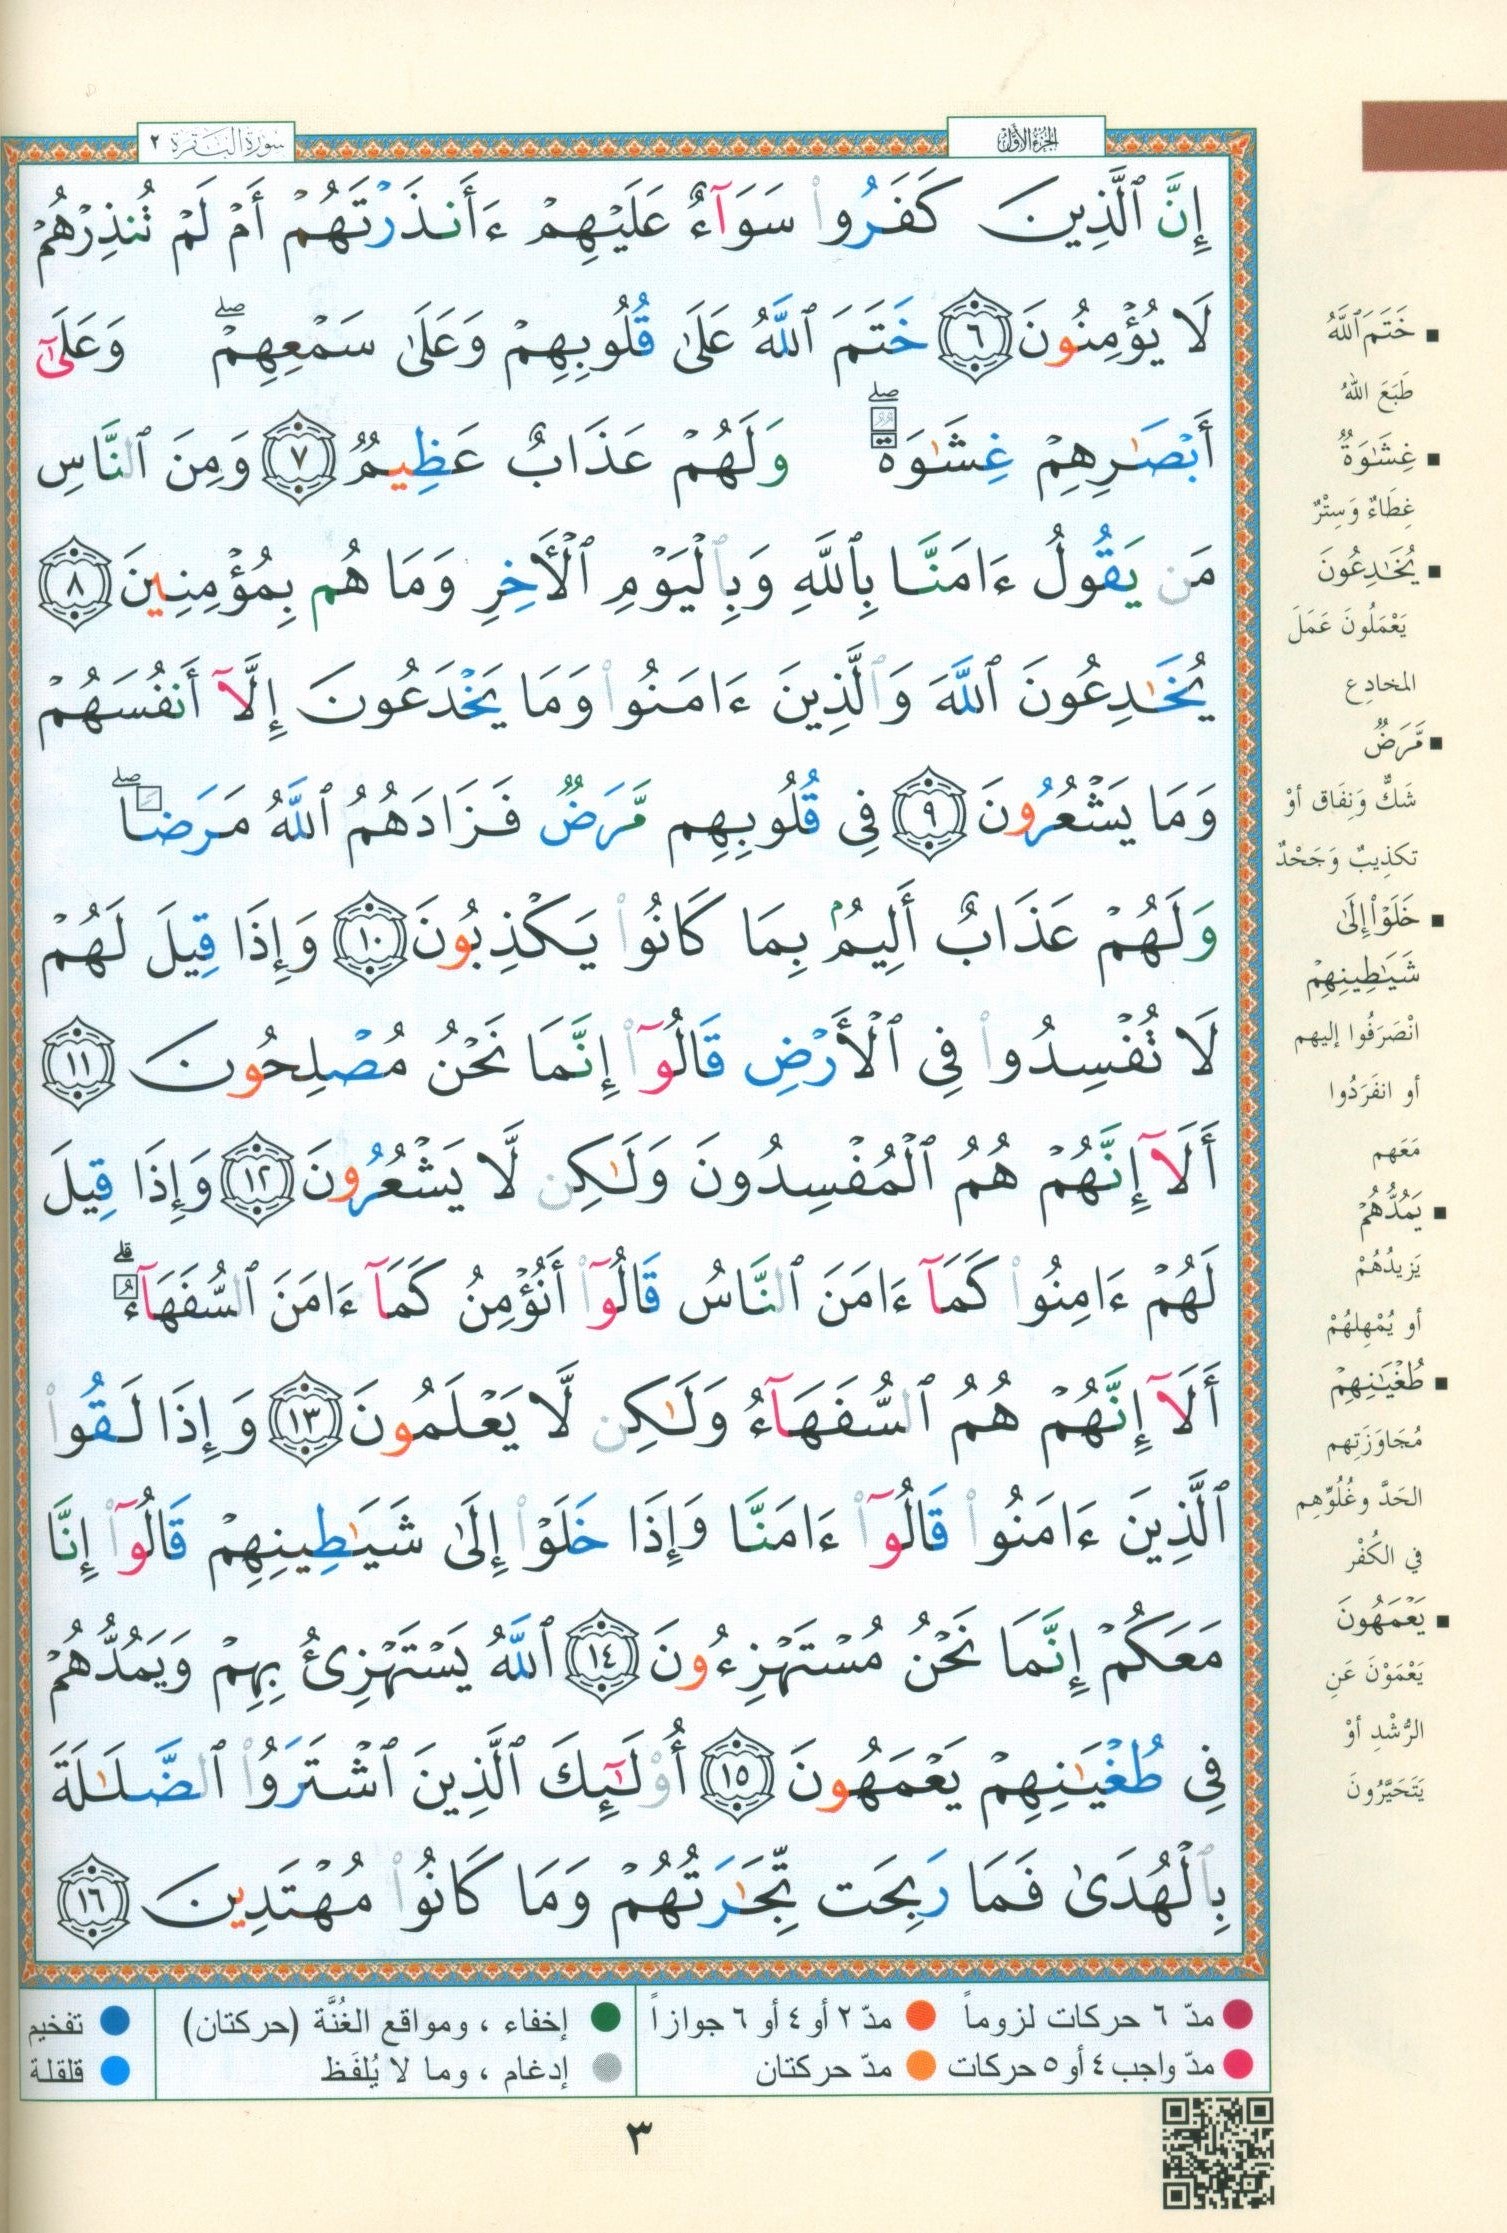 الجزء الأول
سورة البقرة ٢
إِنَّ ٱلَّذِينَ كَفَرُوا۟ سَوَآءٌ عَلَيْهِمْ ءَأَنذَرْتَهُمْ أَمْ لَمْ تُنذِرْهُمْ
لَا يُؤْمِنُونَ ٦ خَتَمَ ٱللَّهُ عَلَىٰ قُلُوبِهِمْ وَعَلَىٰ سَمْعِهِمْ ۖ وَعَلَىٰٓ
أَبْصَـٰرِهِمْ غِشَـٰوَةٌ ۖ وَلَهُمْ عَذَابٌ عَظِيمٌ ٧ وَمِنَ ٱلنَّاسِ
مَن يَقُولُ ءَامَنَّا بِٱللَّهِ وَبِٱلْيَوْمِ ٱلْـَٔاخِرِ وَمَا هُم بِمُؤْمِنِينَ ٨
يُخَـٰدِعُونَ ٱللَّهَ وَٱلَّذِينَ ءَامَنُوا۟ وَمَا يَخْدَعُونَ إِلَّآ أَنفُسَهُمْ
وَمَا يَشْعُرُونَ ٩ فِى قُلُوبِهِم مَّرَضٌ فَزَادَهُمُ ٱللَّهُ مَرَضًا ۖ
وَلَهُمْ عَذَابٌ أَلِيمٌۢ بِمَا كَانُوا۟ يَكْذِبُونَ ١٠ وَإِذَا قِيلَ لَهُمْ
لَا تُفْسِدُوا۟ فِى ٱلْأَرْضِ قَالُوٓا۟ إِنَّمَا نَحْنُ مُصْلِحُونَ ١١
أَلَآ إِنَّهُمْ هُمُ ٱلْمُفْسِدُونَ وَلَـٰكِن لَّا يَشْعُرُونَ ١٢ وَإِذَا قِيلَ
لَهُمْ ءَامِنُوا۟ كَمَآ ءَامَنَ ٱلنَّاسُ قَالُوٓا۟ أَنُؤْمِنُ كَمَآ ءَامَنَ ٱلسُّفَهَآءُ ۗ
أَلَآ إِنَّهُمْ هُمُ ٱلسُّفَهَآءُ وَلَـٰكِن لَّا يَعْلَمُونَ ١٣ وَإِذَا لَقُوا۟
ٱلَّذِينَ ءَامَنُوا۟ قَالُوٓا۟ ءَامَنَّا وَإِذَا خَلَوْا۟ إِلَىٰ شَيَـٰطِينِهِمْ قَالُوٓا۟ إِنَّا
مَعَكُمْ إِنَّمَا نَحْنُ مُسْتَهْزِءُونَ ١٤ ٱللَّهُ يَسْتَهْزِئُ بِهِمْ وَيَمُدُّهُمْ
فِى طُغْيَـٰنِهِمْ يَعْمَهُونَ ١٥ أُو۟لَـٰٓئِكَ ٱلَّذِينَ ٱشْتَرَوُا۟ ٱلضَّلَـٰلَةَ
بِٱلْهُدَىٰ فَمَا رَبِحَت تِّجَـٰرَتُهُمْ وَمَا كَانُوا۟ مُهْتَدِينَ ١٦
▪ خَتَمَ ٱللَّهُ
طَبَعَ اللهُ
▪ غِشَـٰوَةٌ
غِطَاءٌ وَسِتْرٌ
▪ يُخَـٰدِعُونَ
يَعْمَلُونَ عَمَلَ
المخادِع
▪ مَّرَضٌ
شَكٌّ وَنِفَاق أوْ
تكذِيبٌ وَجَحْدٌ
▪ خَلَوْا۟ إِلَىٰ
شَيَـٰطِينِهِمْ
انْصَرَفُوا إليهم
أو انفَرَدُوا
مَعَهم
▪ يَمُدُّهُمْ
يَزيدُهُمْ
أو يُمْهِلهُمْ
▪ طُغْيَـٰنِهِمْ
مُجَاوَزَتِهم
الحَدَّ وغُلُوِّهِم
في الكُفْر
▪ يَعْمَهُونَ
يَعْمَوْنَ عَنِ
الرُّشْدِ أوْ
يَتَحَيَّرُونَ
مدّ ٦ حركات لزوماً مدّ ٢ أو ٤ أو ٦ جوازاً إخفاء ، ومواقع الغُنَّة (حركتان) تفخيم
مدّ واجب ٤ أو ٥ حركات مدّ حركتان إدغام ، وما لا يُلفَظ قلقلة
٣